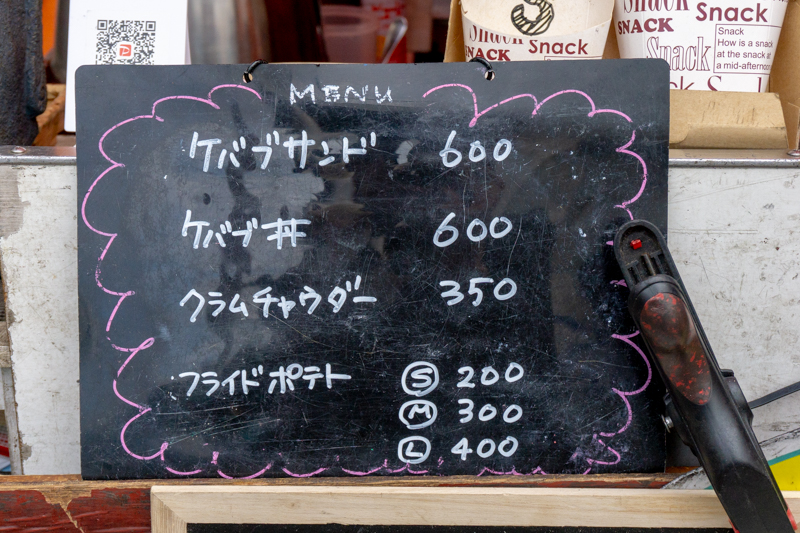 Snack Snack
SNACK Snack
Snack
SNACK
Snack
Snack
How is a snack
at the snack
a mid-afternoo
MENU
ケバブサンド 600
ケバブ丼 600
クラムチャウダー 350
フライドポテト Ⓢ 200
Ⓜ 300
Ⓛ 400